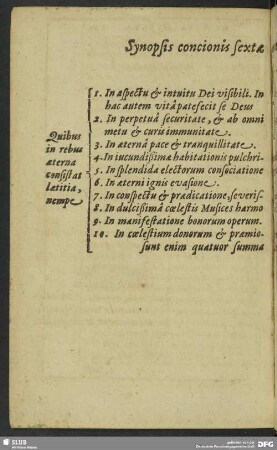 Synopsis concionis sextæ
Quibus
in rebus
æterna
consistat
lætitia,
nempe
1. In aspectu & intuitu Dei visibili. In
hac autem vitâ patefecit se Deus
2. In perpetuâ securitate, & ab omni
metu & curis immunitate.
3. In æternâ pace & tranquillitate.
4. In iucundissimâ habitationis pulchri-
5. In splendida electorum consociatione
6. In æterni ignis evasione.
7. In conspectu & prædicatione, severis-
8. In dulcissimâ cœlestis Musices harmo
9. In manifestatione bonorum operum.
10. In cœlestium donorum & præmio-
sunt enim quatuor summa
SLUB
DFG